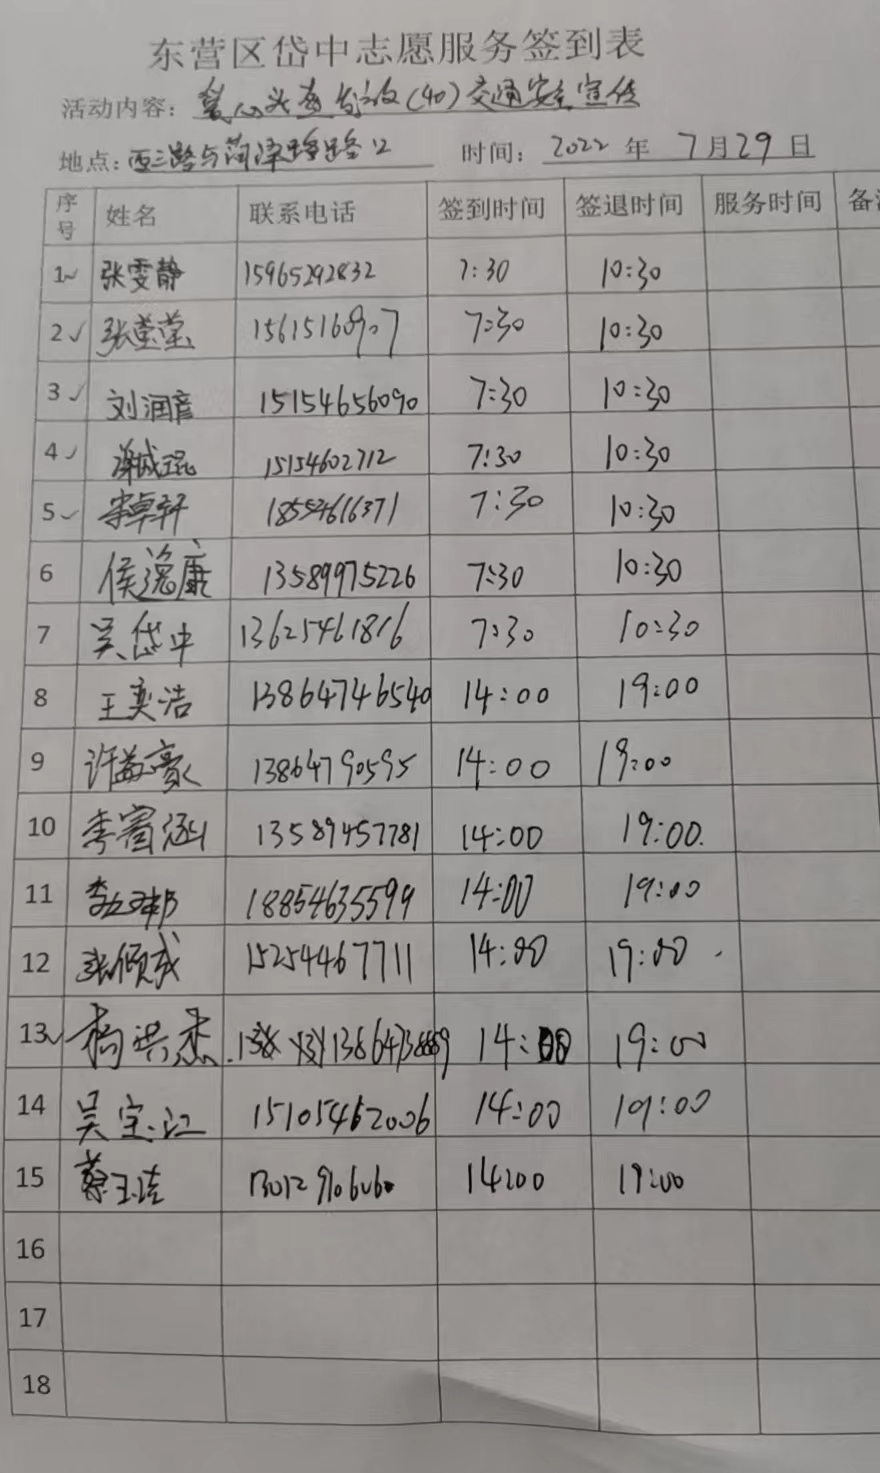 东营区岱中志愿服务签到表
活动内容: 爱心头盔发放(40)交通安全宣传
地点: 西三路与菏泽路路口 时间: 2022 年 7月29日
序号 姓名 联系电话 签到时间 签退时间 服务时间 备
1 张雯静 15965292832 7:30 10:30
2 张莹莹 15615160907 7:30 10:30
3 刘润彦 15154656090 7:30 10:30
4 15154602712 7:30 10:30
5 李卓轩 18554616371 7:30 10:30
6 侯逸康 13589975226 7:30 10:30
7 吴岱中 13625461816 7:30 10:30
8 王奕浩 13864746540 14:00 19:00
9 许益豪 13864790595 14:00 19:00
10 李宥涵 13589457781 14:00 19:00
11 18854635599 14:00 19:00
12 张倾成 15254467711 14:00 19:00
13 杨洪杰 14:00 19:00
14 吴宝江 15105462006 14:00 19:00
15 蔡玉洁 14:00 19:00
16
17
18